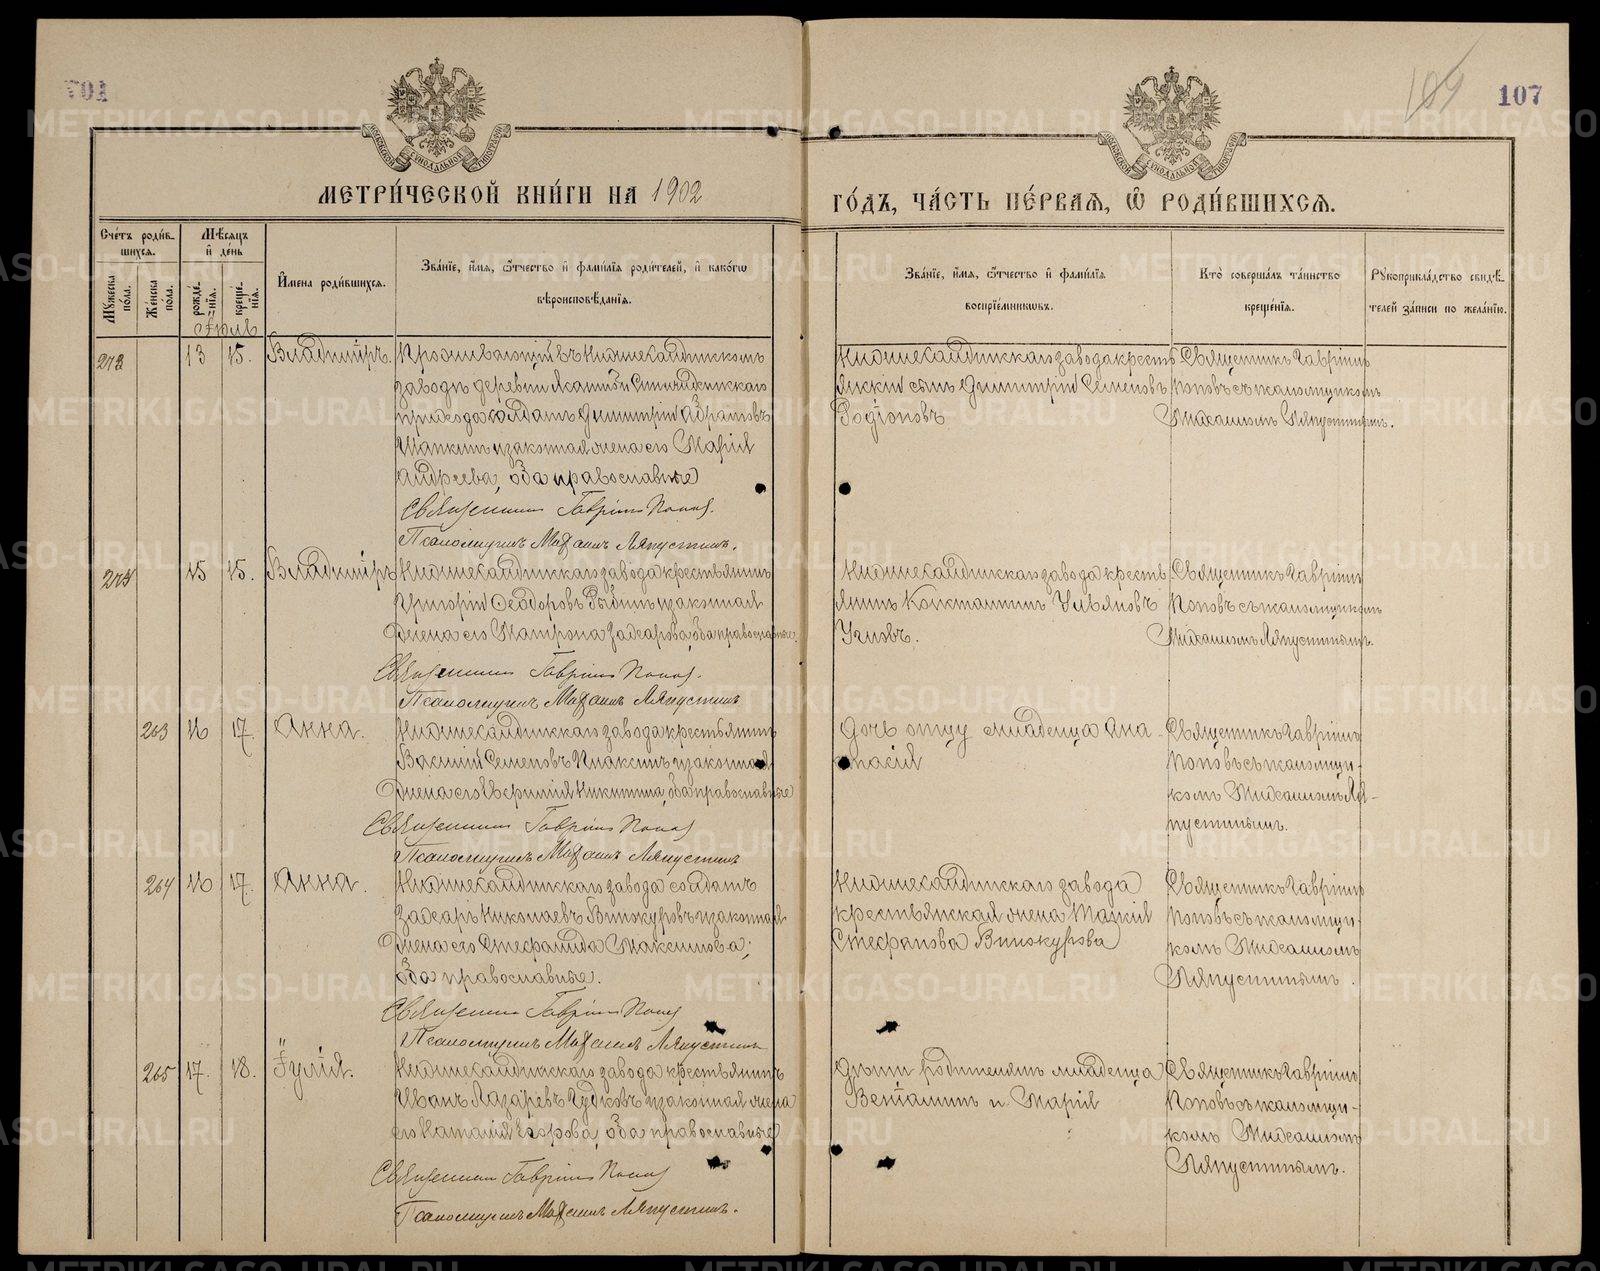 701
107
109
МОСКОВСКОЙ СѴНОДАЛЬНОЙ ТИПОГРАФІИ
МОСКОВСКОЙ СѴНОДАЛЬНОЙ ТИПОГРАФІИ
МЕТРИ́ЧЕСКОЙ КНИ́ГИ НА 1902
ГО́ДЪ, ЧА́СТЬ ПЕ́РВАѦ, Ѡ РОДИ́ВШИХСѦ.
Сче́тъ роди́в-
шихсѧ.
Мꙋ́жеска
по́ла.
Же́нска
по́ла.
Мѣ́сѧцъ
и҆ де́нь
рожде́-
нїѧ.
креще́-
нїѧ.
И҆мена̀ роди́вшихсѧ.
Зва́нїе, и҆́мѧ, ѻ҆́тчество и҆ фами́лїѧ роди́телей, и҆ како́гѡ
вѣроисповѣ́данїѧ.
Зва́нїе, и҆́мѧ, ѻ҆́тчество и҆ фами́лїѧ
воспрїе́мникѡвъ.
Кто̀ соверша́лъ та́инство
креще́нїѧ.
Рꙋкоприкла́дство свидѣ́-
телей за́писи по жела́нїю.
Іюль
273
13 15.
Владиміръ.
Проживающій въ Нижнесалдинскомъ
заводѣ деревни
прихода солдатъ Димитрій
законная жена его Марія
Андреева, оба православные
Священникъ Гавріилъ Поповъ.
Псаломщикъ Михаилъ Ляпустинъ.
Нижнесалдинскаго завода кресть
янскій сынъ Димитрій Семеновъ
Родіоновъ
Священникъ Гавріилъ
Поповъ съ псаломщикомъ
Михаиломъ Ляпустинымъ.
274
15 15.
Владиміръ
Нижнесалдинскаго завода крестьянинъ
Григорій Ѳеодоровъ и законная
жена его Матрона Захарова, оба православные.
Священникъ Гавріилъ Поповъ.
Псаломщикъ Михаилъ Ляпустинъ
Нижнесалдинскаго завода кресть
янинъ Константинъ Ульяновъ
Священникъ Гавріилъ
Поповъ съ псаломщикомъ
Михаиломъ Ляпустинымъ.
263
16 17.
Анна.
Нижнесалдинскаго завода крестьянинъ
Василій Семеновъ и законная
жена его Никитина, оба православные
Священникъ Гавріилъ Поповъ
Псаломщикъ Михаилъ Ляпустинъ
Дочь отцу младенца Ана-
стасія
Священникъ Гавріилъ
Поповъ съ псаломщи-
комъ Михаиломъ Ля-
пустинымъ.
264
16 17.
Анна.
Нижнесалдинскаго завода солдатъ
Захаръ Николаевъ Винокуровъ и законная
жена его Стефанида Максимова;
оба православные.
Священникъ Гавріилъ Поповъ
Псаломщикъ Михаилъ Ляпустинъ
Нижнесалдинскаго завода
крестьянская жена
Стефанова Винокурова
Священникъ Гавріилъ
Поповъ съ псаломщи-
комъ Михаиломъ
Ляпустинымъ.
265
17. 18.
Іулія.
Нижнесалдинскаго завода крестьянинъ
Иванъ Лазаревъ Гудковъ и законная жена
его Наталія Егорова, оба православные
Священникъ Гавріилъ Поповъ
Псаломщикъ Михаилъ Ляпустинъ.
Дѣти родителямъ младенца
Веніаминъ и Марія
Священникъ Гавріилъ
Поповъ съ псаломщи-
комъ Михаиломъ
Ляпустинымъ.
METRIKI.GASO-URAL.RU